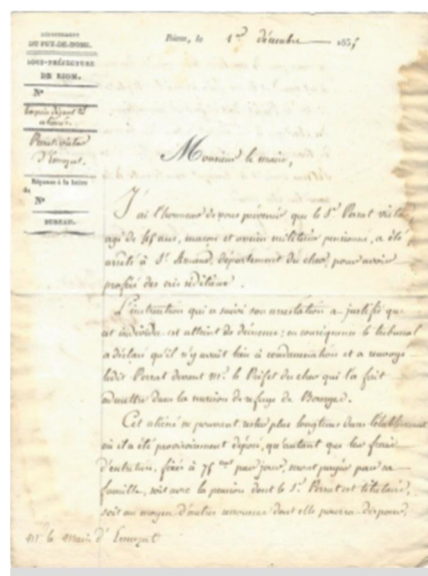 DÉPARTEMENT
DU PUY-DE-DOME.
SOUS-PRÉFECTURE
DE RIOM.
N°
Riom, le 1er décembre 185
Perrat
d'Ennezat.
Réponse à la lettre
du
N°
BUREAU.
Monsieur le maire,
J'ai l'honneur de vous prévenir que le Sr. Perrat
agé de 45 ans, maçon et ancien militaire pensionné, a été
arrêté à St. Amand, département du cher, pour avoir
proféré des cris séditieux.
L'instruction qui a suivi son arrestation a justifié que
cet individu est atteint de démence; en conséquence le tribunal
a déclaré qu'il n'y avait lieu à condamnation et a renvoyé
ledit Perrat devant Mr. le Préfet du cher qui l'a fait
admettre dans la maison de refuge de Bourges.
Cet aliéné ne pouvant rester plus longtems dans l'établissement
où il a été provisoirement déposé, qu'autant que les frais
d'entretien, fixés à 75 par jour, seront payés par sa
famille, soit avec la pension dont le Sr. Perrat est titulaire,
soit au moyen d'autres ressources dont elle pourra disposer,
Mr. le Maire d'Ennezat